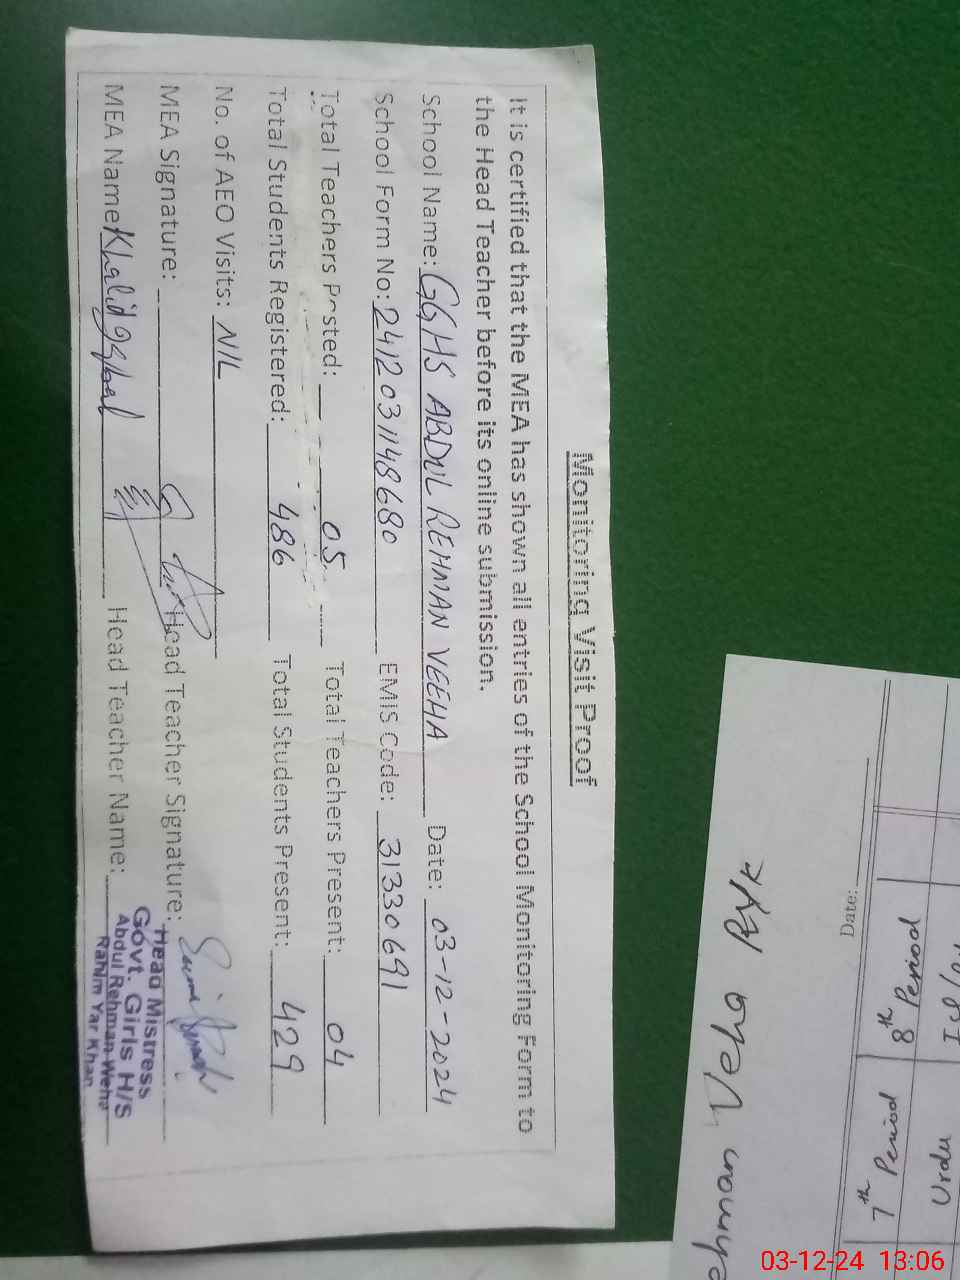 Monitoring Visit Proof
It is certified that the MEA has shown all entries of the School Monitoring Form to
the Head Teacher before its online submission.
School Name: GGHS ABDUL REHMAN VEEHA Date: 03-12-2024
School Form No: 2412031148680 EMIS Code: 31330691
Total Teachers Posted: 05 Total Teachers Present: 04
Total Students Registered: 486 Total Students Present: 429
No. of AEO Visits: NIL
MEA Signature: Head Teacher Signature:
MEA Name: Khalid Iqbal Head Teacher Name:
Head Mistress
Govt. Girls H/S
Abdul Rehman Weha
Rahim Yar Khan
Veha RYK
Date:
7th Period 8th Period
Urdu
03-12-24 13:06